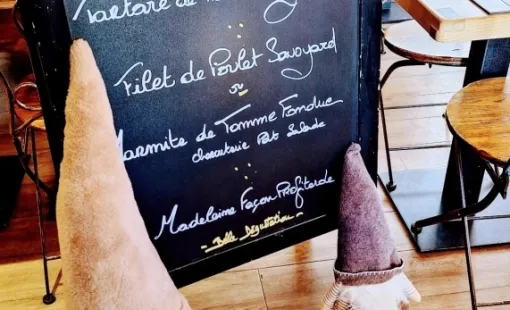 Tartare de
Filet de Poulet Savoyard
ou
Marmite de Tomme Fondue
charcuterie Pdt Salade
Madeleine Façon Profiterole
Belle Dégustation